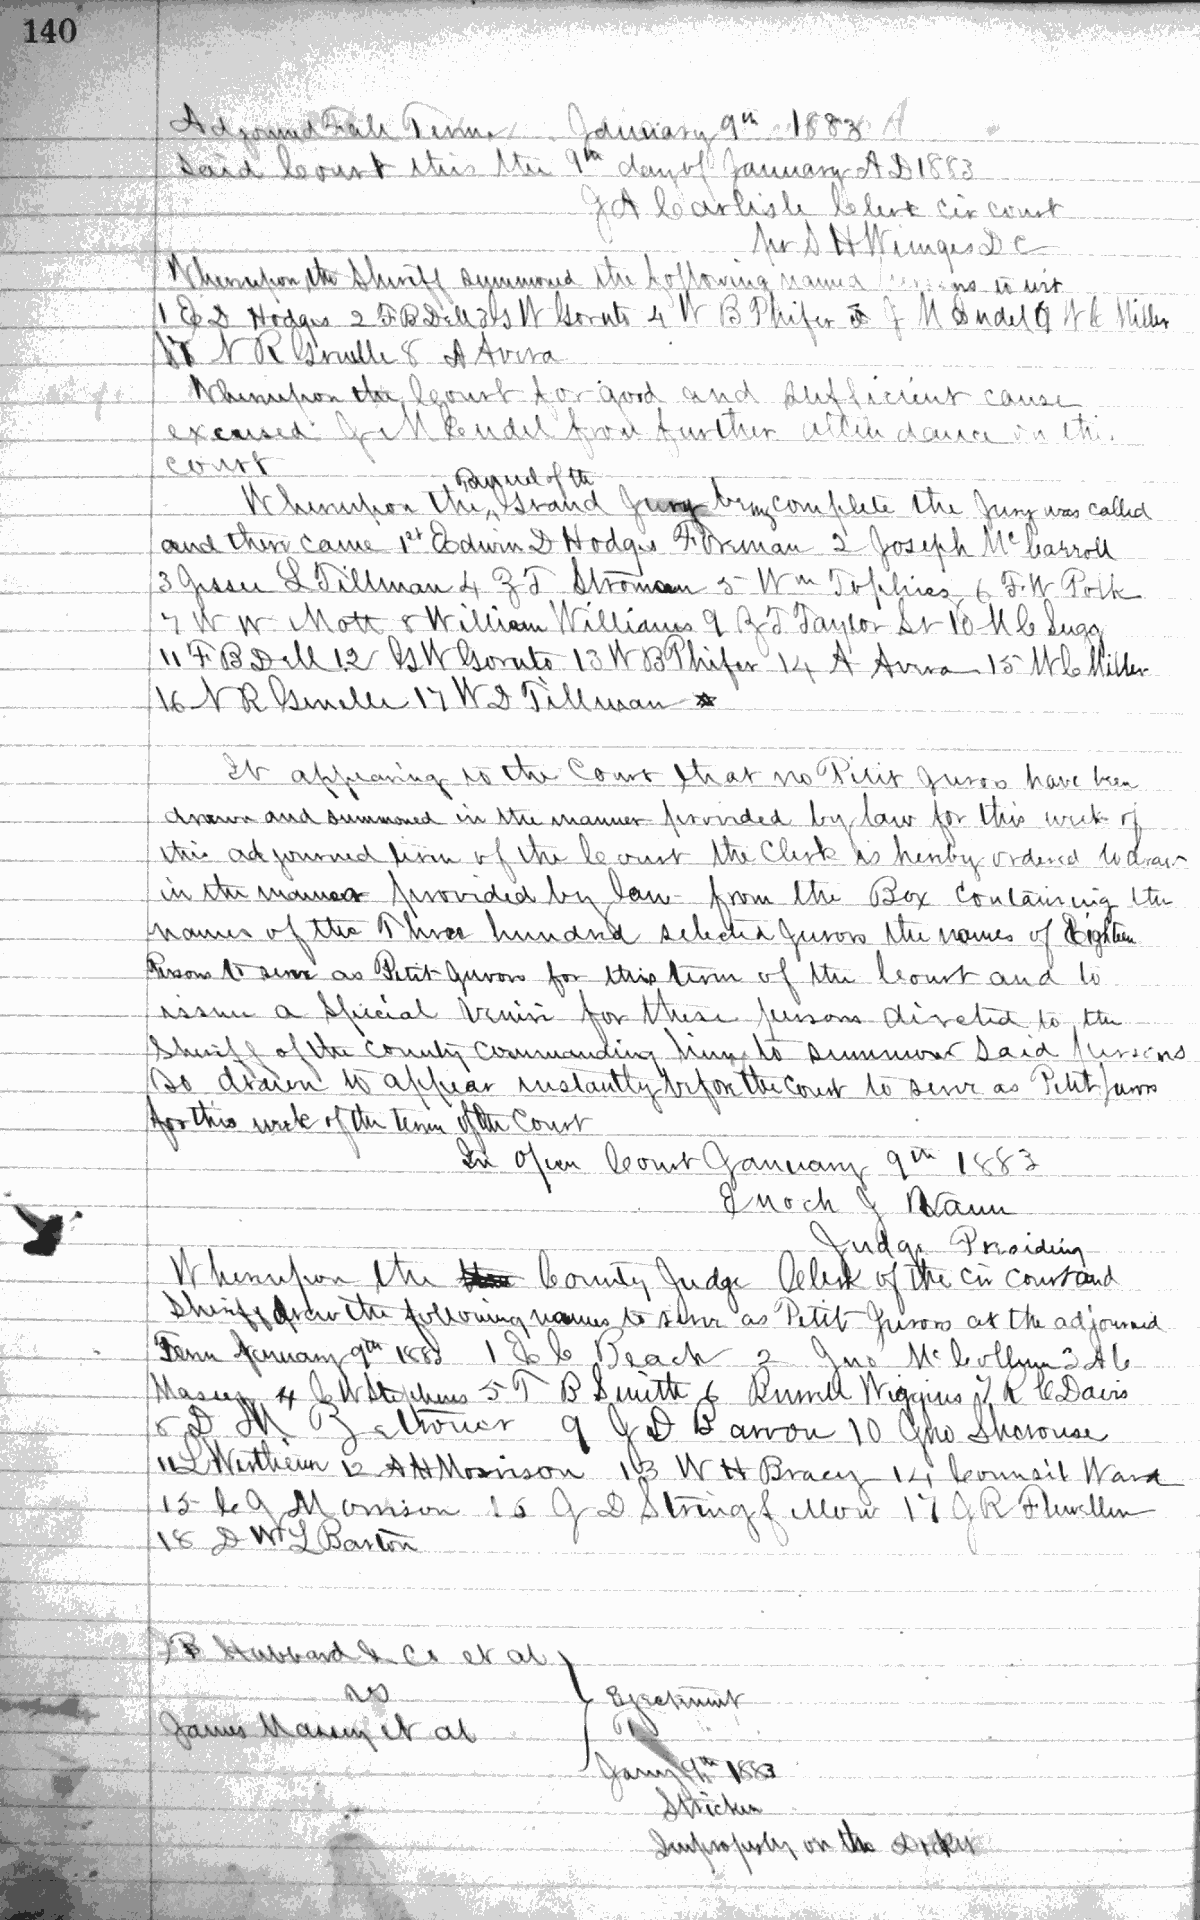 140
Adjourned Fall Term January 9th 1883
Said Court this the 9th day of January A D 1883
J A Carlisle Clerk Cir court
Pr S H Wimges D C
Whereupon the Sheriff summoned the following named persons to wit
1 E D Hodges 2 F B Dell 3 G W Goruto 4 W B Phifer 5 J M Cendel 6 W C Miller
7 N R Gruelle 8 A Avera
Whereupon the Court for good and sufficient cause
excused J M Cendel from further attendance on this
court
panel of the
Whereupon the Grand Jury being complete the Jury was called
and there came 1st Edwin D Hodges Foreman 2 Joseph Mc Carroll
3 Jessee L Tillman 4 Z T Stroman 5 Wm Tophies 6 F. W Polk
7 W W Mott 8 William Williams 9 Z T Taylor Sr 10 M C Sugg
11 F B Dell 12 G W Goruto 13 W B Phifer 14 A Avera 15 W C Miller
16 N R Gruelle 17 W D Tillman
It appearing to the Court that no Petit Jurors have been
drawn and summoned in the manner provided by law for this week of
this adjourned term of the Court the Clerk is hereby ordered to draw
in the manner provided by law from the Box containing the
names of the Three hundred selected Jurors the names of Eighteen
Persons to serve as Petit Jurors for this term of the Court and to
issue a Special Venire for these persons directed to the
Sheriff of the county commanding him to summon said persons
so drawn to appear instantly before the Court to serve as Petit Jurors
for this week of the term of the Court
In open Court January 9th 1883
Enoch J Vann
Judge Presiding
Whereupon the County Judge Clerk of the Cir Court and
Sheriff drew the following names to serve as Petit Jurors at the adjourned
Term January 9th 1883 1 E C Beach 2 Jno McCollum 3 A C
Massey 4 C W Stephens 5 T B Smith 6 Russell Wiggins 7 R C Davis
8 D M Zetrouer 9 J D Barron 10 Jno Sherouse
11 L Wertheim 12 A H Morrison 13 W H Bracey 14 Counsil Ward
15 C J Morrison 16 J D Stringfellow 17 J R Flewellen
18 D W L Barton
B Hubbard & Co et al
vs
James Massey et al
Ejectment
Jany 9th 1883
Stricken
Improperly on the Docket